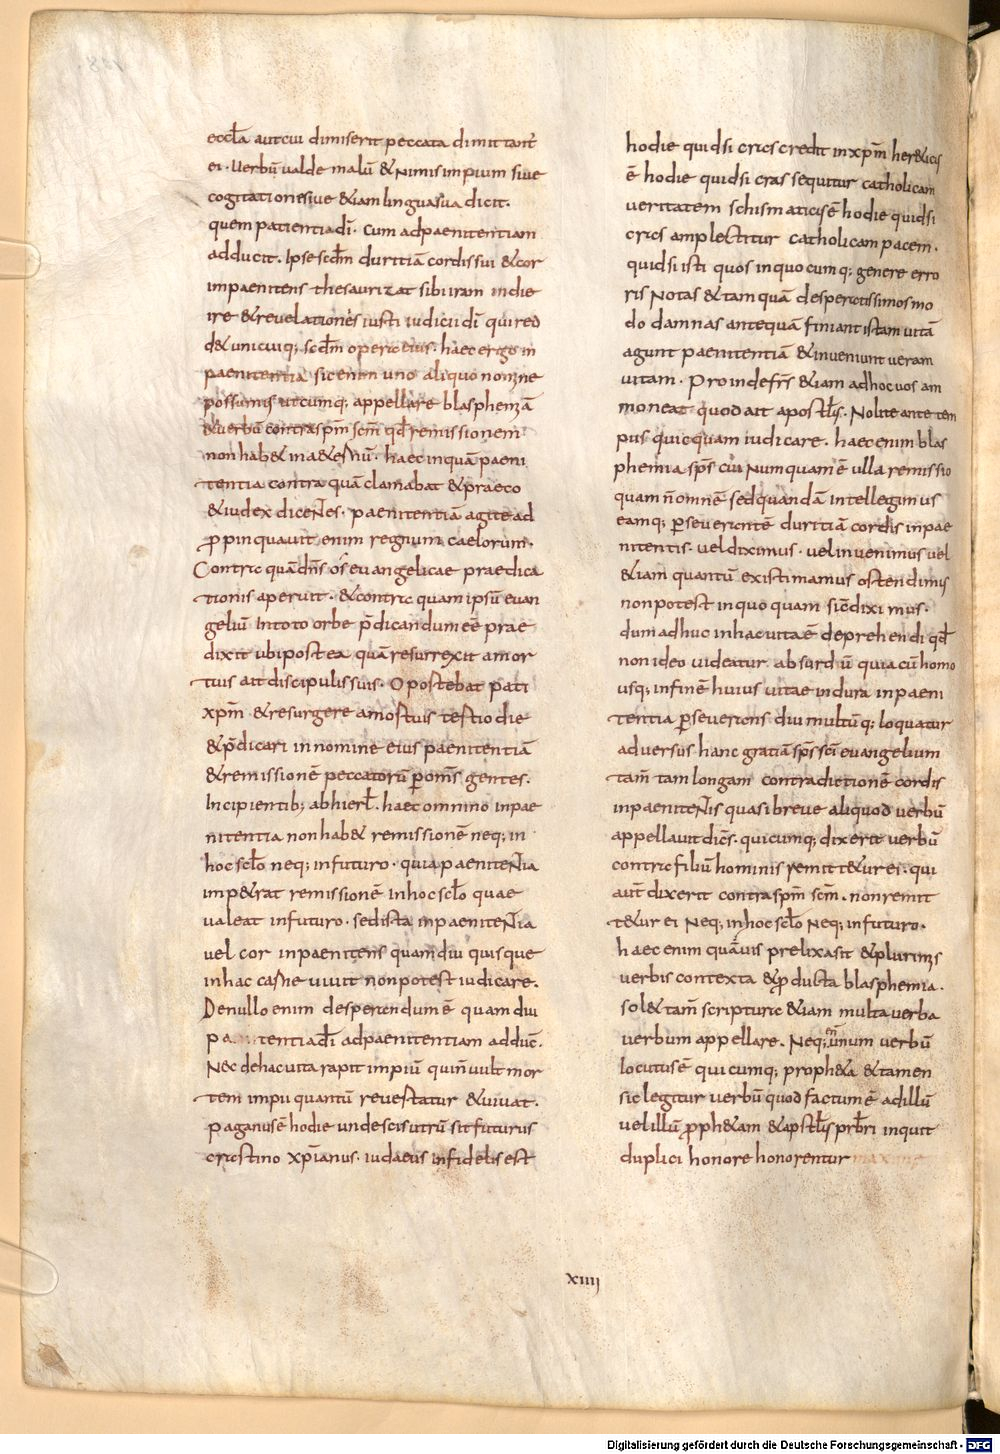 eccła aut cui dimiserit peccata dimittant̄
ei· Verbū valde malū &nimis impium sive
cogitatione sive &iam lingua sua dicit·
quem patientia dī· cum ad paenitentiam
adducit· Ipse scdm̄ duritiā cordis sui &cor
impaenitens thesaurizat sibi iram in die
ire &revelationis iusti iudicii dī qui red
d& unicuiq; scdm̄ opera eius· haec ergo in
paenitentia sic enim uno aliquo nomine
possumus utcumq; appellare blasphemiā
&verbū contra spm̄ scm̄ qđ remissionem
non hab& in a&ernū· haec inquā paeni
tentia contra quā clamabat &praeco
&iudex dicentes· paenitentiā agite ad
propinquavit enim regnum caelorum·
Contra quā dn̄s os evangelicae praedica
tionis aperuit· &contra quam ipsū evan
geliū In toto orbe p̄dicandum eē prae
dixit ubi postea quā resurrexit a mor
tuis ait discipulis suis· Oportebat pati
xpm̄ &resurgere a mortuis tertio die
&p̄dicari in nomine eius paenitentiā
&remissionē peccatorū p̱ om̄s gentes·
Incipientib; ab hierł· haec omnino inpae
nitentia non hab& remissionē neq; in
hoc scło neq; in futuro· quia paenitentia
imp&rat remissionē in hoc scło quae
valeat in futuro· sed ista inpaenitentia
vel cor inpaenitens quamdiu quisque
in hac carne vivit non potest iudicare·
De nullo enim desperandum ē quamdiu
pa tentia dī ad paenitentiam adduc̄·
Nec de hac vita rapit impiū qui n̄ vult mor
tem impii quantū revertatur &vivat·
paganus ē hodie unde scis utrū sit futurus
crastino xp̄ianus· iudaeus infidelis est
hodie quid si cras credit in xpm̄ her&icus
ē hodie quid si cras sequitur catholicam
veritatem schismaticus ē hodie quid si
cras amplectitur catholicam pacem·
quid si isti quos in quocumq; genere erro
ris notas &tamquā desperatissimos mo
do damnas antequā finiant istam vitā
agunt paenitentiā &inveniunt veram
vitam· Proinde fr̄s &iam ad hoc vos am
moneat quod ait apostłs· Nolite ante tem
pus quicquam iudicare· haec enim blas
phemia sp̄s cui numquam ē ulla remissio
quam n̄ omnē sed quandā intellegimus
eamq; p̱severantē duritiā cordis inpae
nitentis· vel diximus· vel invenimus vel
&iam quantū existimamus ostendimus
non potest in quoquam sic̄ diximus·
dum adhuc in hac vita ē deprehendi qđ
non ideo videatur absurdū quia cū homo
usq; in finē huius vitae in dura inpaeni
tentia p̱severans diu multūq; loquatur
adversus hanc gratiā sp̄s sc̄i evangelium
tam̄ tam longam contradictionē cordis
inpaenitentis quasi breve aliquod verbū
appellavit dīcs· quicumq; dixerit verbū
contra filiū hominis remitt&ur ei· qui
aut̄ dixerit contra spm̄ scm̄· non remit
t&ur ei neq; in hoc scło neq; in futuro·
haec enim quāvis prelixa sit &plurimis
verbis contexta &p̱ducta blasphemia·
sol& tam̄ scriptura &iam multa verba
verbum appellare· Neq; enī unum verbū
locutus ē quicumq; proph&a &tamen
sic legitur verbū quod factum ē ad illū
vel illū p̱ph&am &apstłs prb̄ri inquit
duplici honore honorentur
xiiij
Digitalisierung gefördert durch die Deutsche Forschungsgemeinschaft - DFG